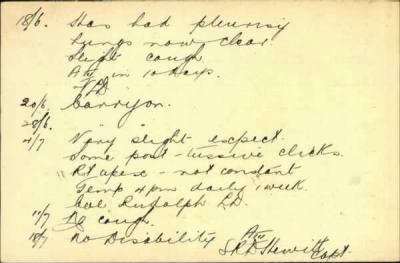 18/6. Has had pleurisy
Lungs now clear
Slight cough
in 10 days.
20/6. Carry on.
28/6. " "
4/7 Very slight expect.
Some post-tussive clicks.
Rt apex - not constant
Temp 4pm daily 1 week.
Rudolph
11/7 No cough.
18/7 No Disability
Hewitt Capt.